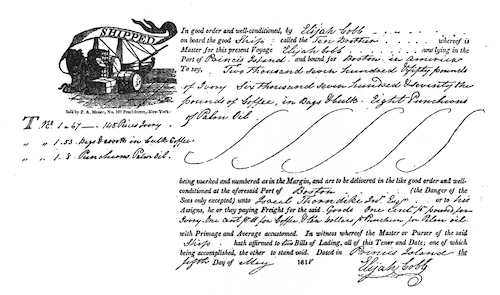 SHIPPED
Sold by P. A. Mesier, No. 107 Pearl-street, New-York.
In good order and well-conditioned, by Elijah Cobb
on board the good Ship called the Ten Brothers whereof is
Master for this present Voyage Elijah Cobb now lying in the
Port of Princis Island and bound for Boston in america
To say, Two thousand seven hundred & fifty pounds
of Ivory Six thousand seven hundred & seventy three
pounds of Coffee, in Bags & bulk. Eight Puncheons
of Palm Oil
T Nos 1 a 67 — 148 Pieces Ivory
" " 1. 53 Bags & in bulk Coffee
" " 1. 8. Puncheons Palm Oil.
being marked and numbered as in the Margin, and are to be delivered in the like good order and well-
conditioned at the aforesaid Port of Boston (the Danger of
the Seas only excepted) unto Israel Thorndike Jnr. Esqr or to his
Assigns, he or they paying Freight for the said Goods One Cent pr pound for
Ivory One Cent pr lb for Coffee & Ten dollars pr Puncheon for Palm oil
with Primage and Average accustomed. In witness whereof the Master or Purser of the said
Ship hath affirmed to two Bills of Lading, all of this Tenor and Date; one of which
being accomplished, the other to stand void. Dated in Princis Island the
fifth Day of May 181
Elijah Cobb